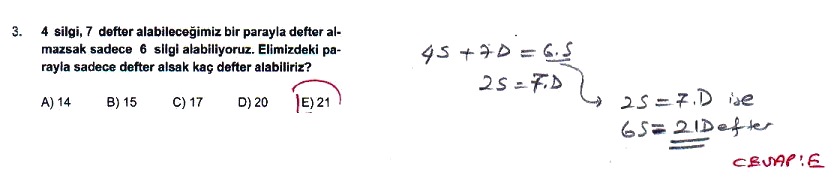 3. 4 silgi, 7 defter alabileceğimiz bir parayla defter al-
mazsak sadece 6 silgi alabiliyoruz. Elimizdeki pa-
rayla sadece defter alsak kaç defter alabiliriz?
A) 14 B) 15 C) 17 D) 20 E) 21
4S + 7D = 6.S
2S = 7.D
2S = 7.D ise
6S = 21Defter
CEVAP: E